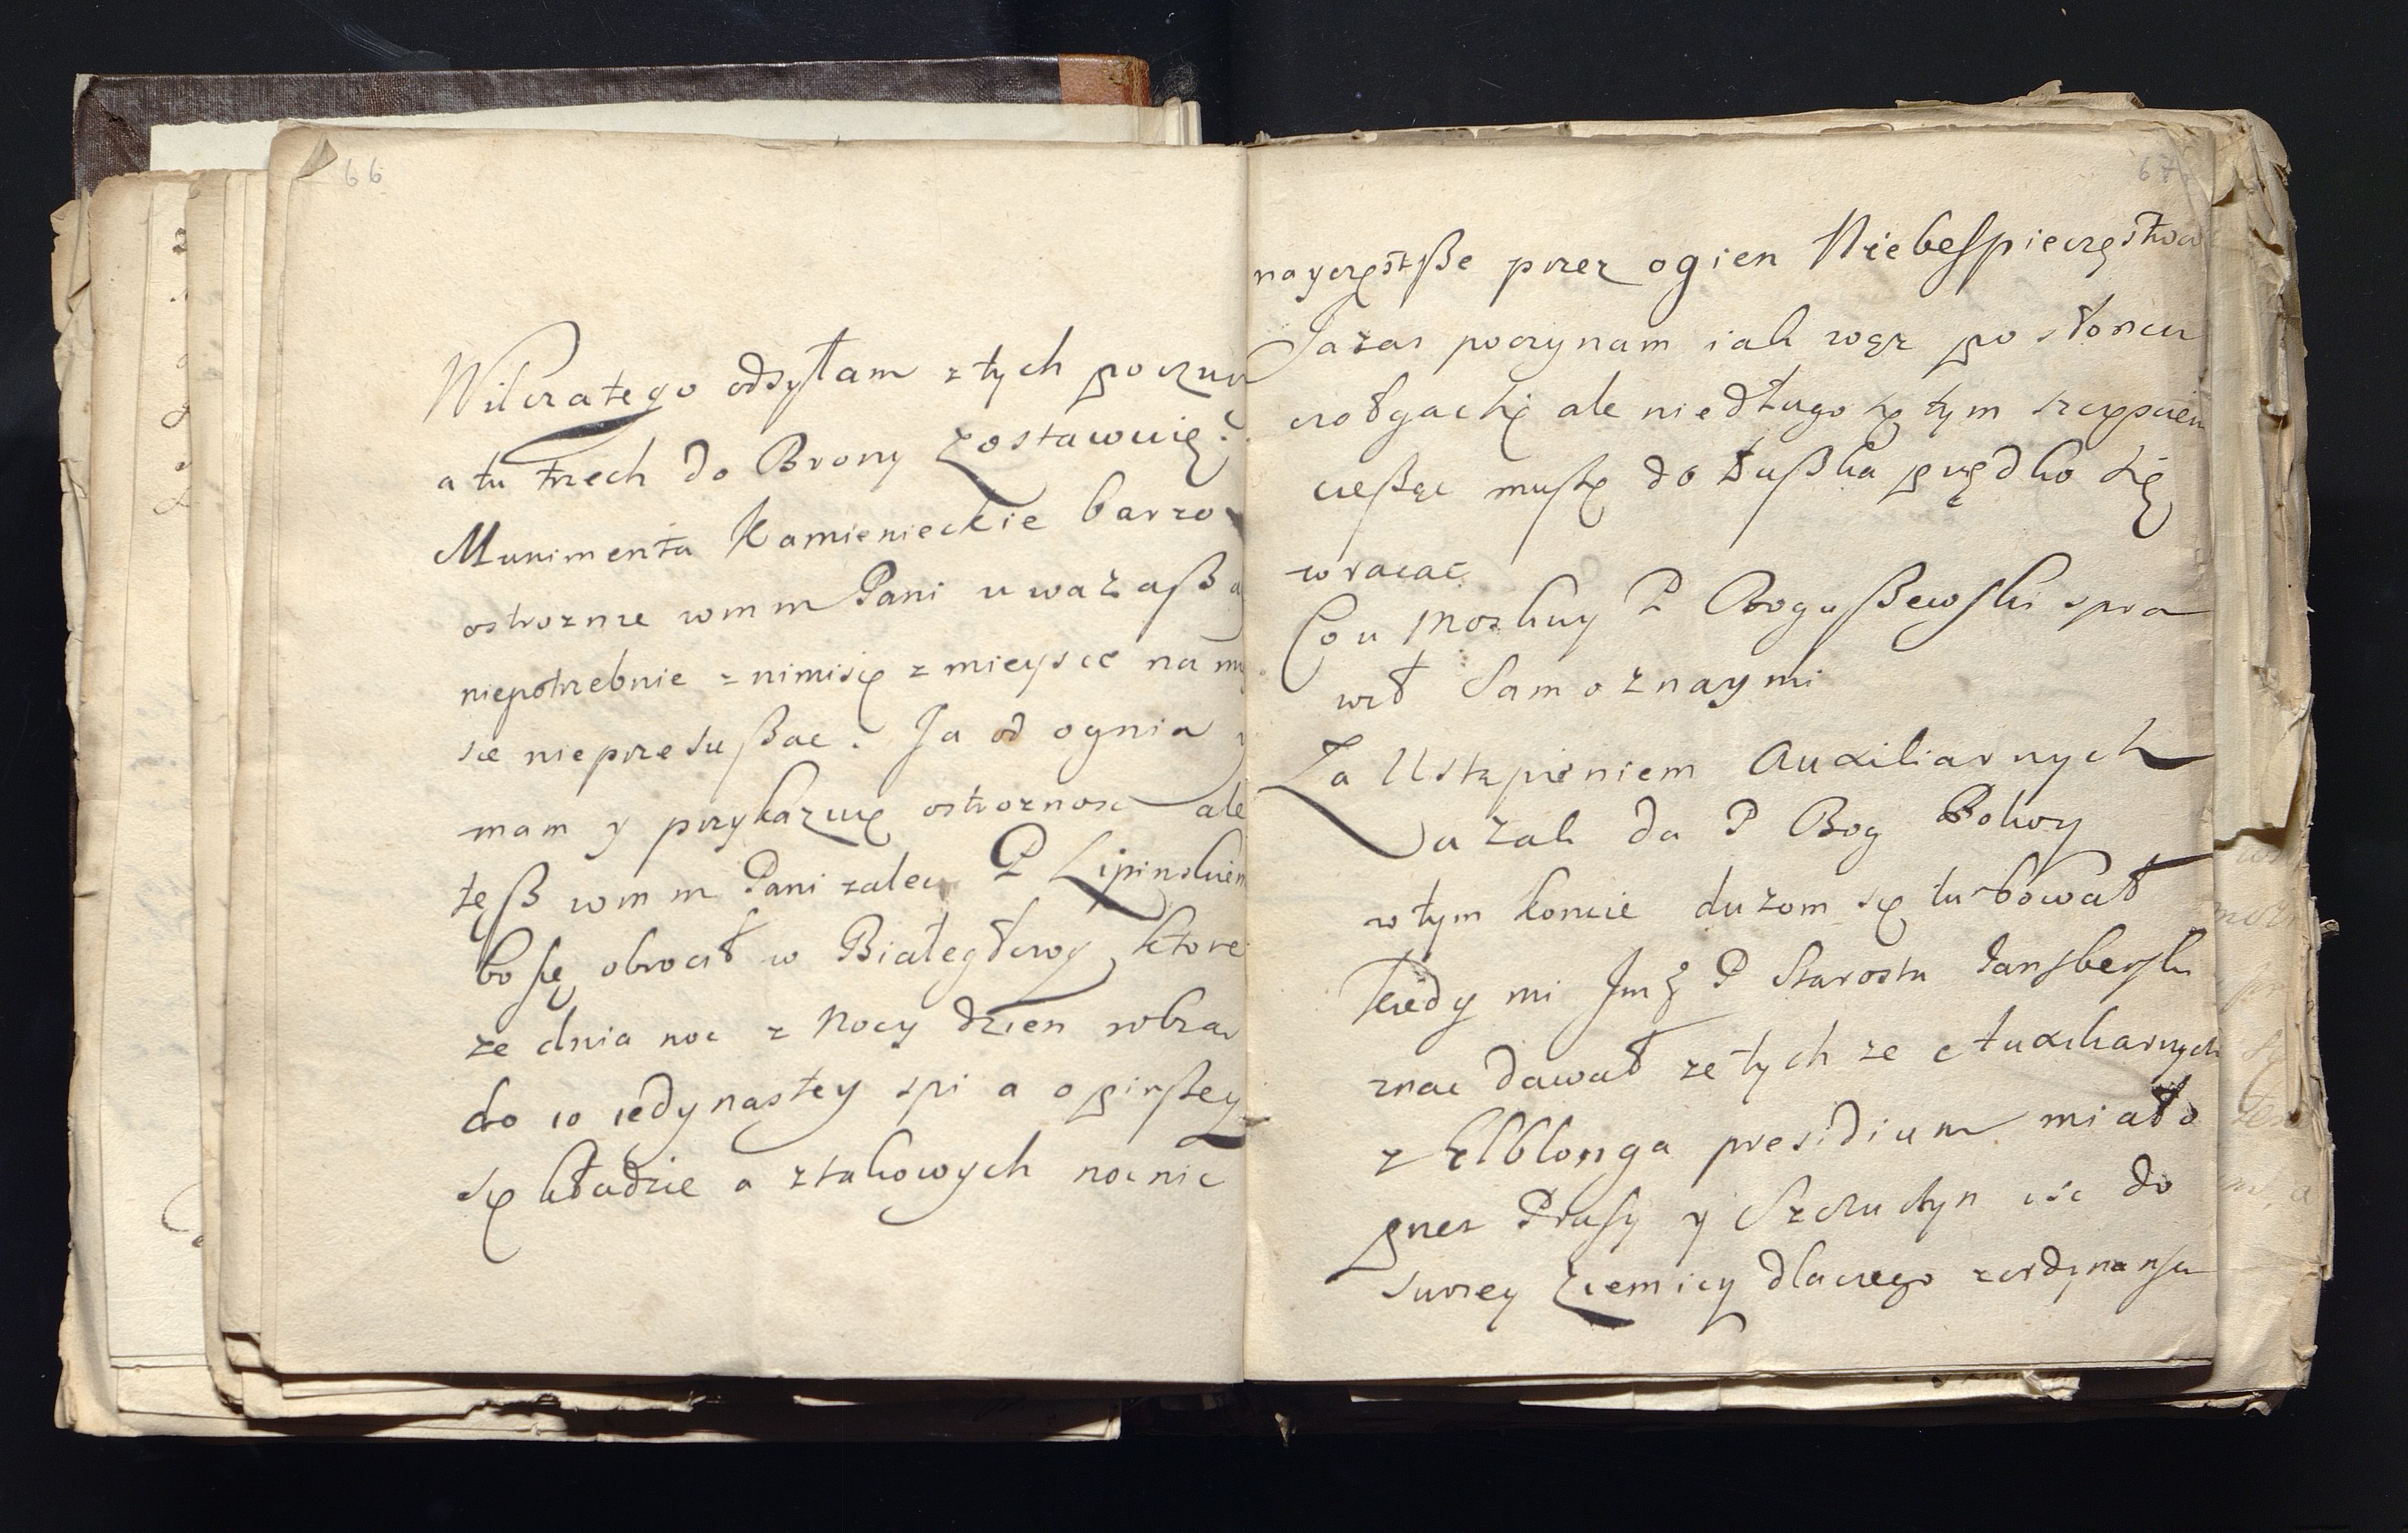 66
Wilczatego odsyłam z tych poczuw
a tu trzech do Brony zostawuię.
Munimenta Kamienieckie barzo
ostroznie wmm Pani uwazaß a
niepotrzebnie z nimisię z mieysce na my
sce nieprzesußac. Ja od ognia
mam y przykazuię ostroznosc ale
teß wmm Pani zalec P Lipinskiem
bo się obrocił w Białegłowy ktore
ze dnia noc z Nocy dzien robią
do 10 iedynastey spi a o pirßey
się kładzie a ztakowych nocnic
67
nayczęstße przez ogien Niebespieczęstwa
Ja zas poczynam iak wąz po słoncu
czołgac się ale niedługo się tym szczęsciem
cießąc muszę do Łußka prędko się
wracac
Co u Moskwy P Bogußewski spra
wił Sam oznaymi
Za Ustąpieniem Auxiliarnych
a zali da P Bog Pokoy
w tym koncie duzom się turbował
kiedy mi Jmę P Starosta Jansberski
znac dawał ze tych ze Auxiliarnych
z Elblonga presidium miało
przez Prusy y Szczuczyn isc do
Surey Ziemicy dlaczego zordynansu